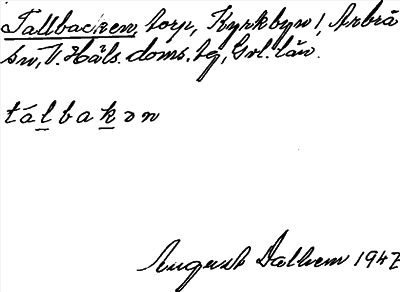 Tallbacken, torp, Kyrkbyn 1, Arbrå
sn, V. Häls. doms. bg, Gvl. län.
tálbakɔn
August Dalhem 1947